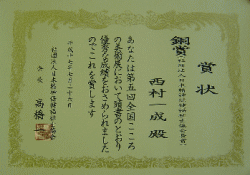 賞状
銅賞
西村一成 殿
あなたは第五回全国こころ
の美術展において頭書のとおり
優秀な成績をおさめられました
のでこれを賞します
平成十七年七月二十六日
会長 高橋